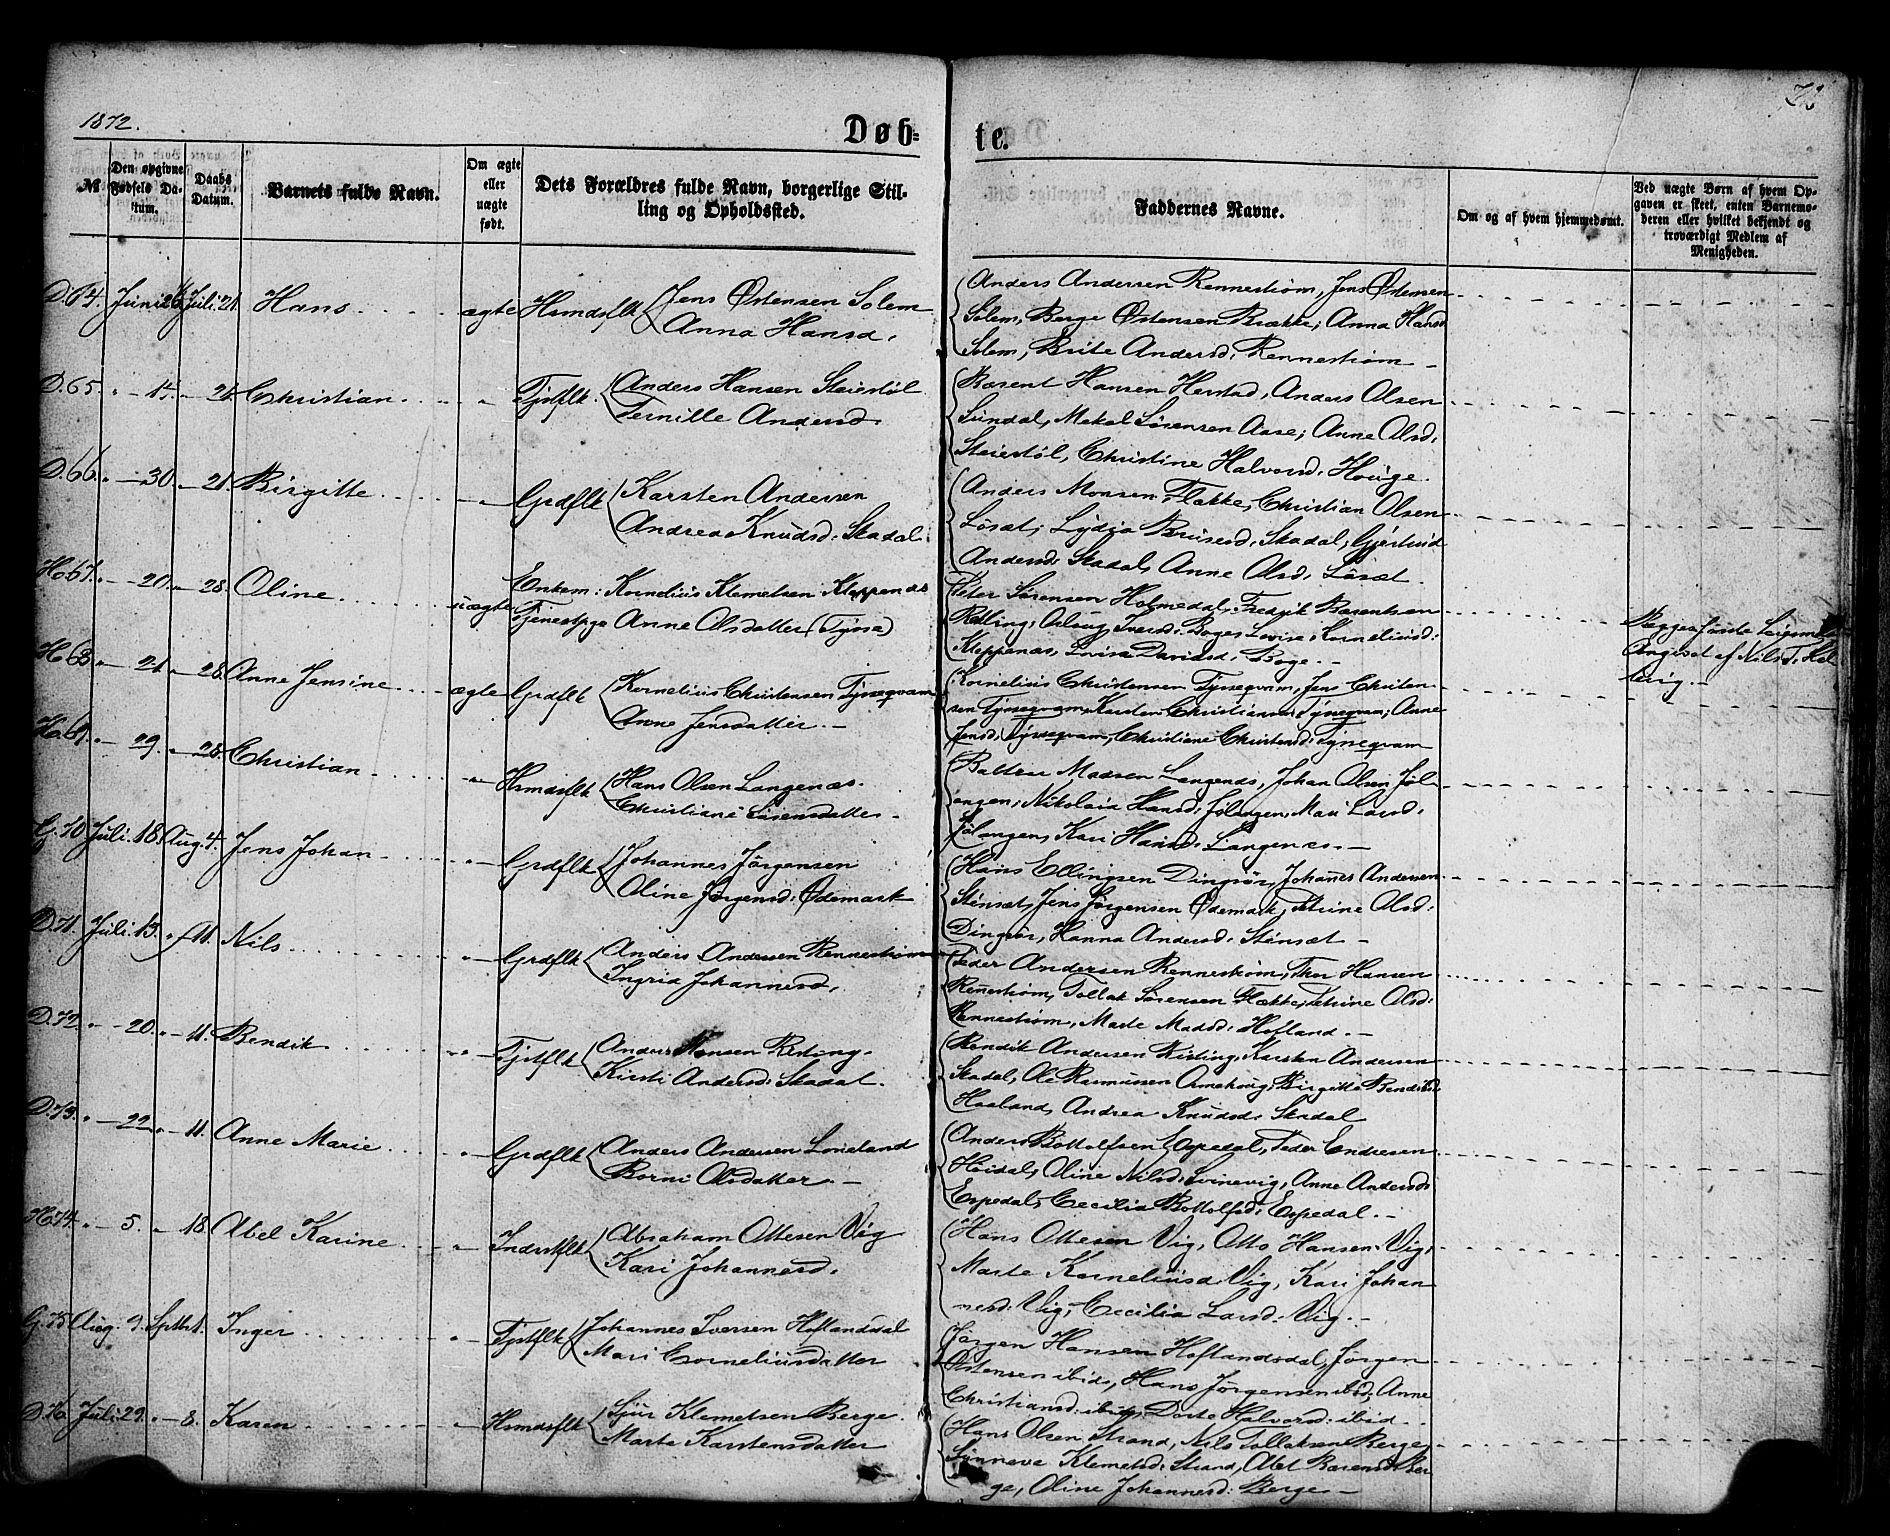 1872.
Døb=
te.
№
Den opgivne Fødsels Datum.
Daabs Datum.
Barnets fulde Navn.
Om ægte eller uægte født.
Dets Forældres fulde Navn, borgerlige Stilling og Opholdssted.
Faddernes Navne.
Om og af hvem hjemmedøbt.
Ved uægte Børn af hvem Opgaven er skeet, enten Barnemoderen eller hvilket bekjendt og troværdigt Medlem af Menigheden.
D.64. Juni 26 Juli 21. Hans ægte Hsmdsflk Jens Østensen Solem
Anna Hansd.
Anders Andersen Rennestrøm, Jens Østensen
Solem, Berge Østensen Brække, Anna Hansd
Solem, Brite Andersd. Rennestrøm
D.65. " 14. " 21. Christian " Tjstflk. Anders Hansen Staiestøl
Pernille Andersd.
Barent Hansen Herstad, Anders Olsen
Sundal, Mekal Sørensen Aase, Anne Olsd.
Staiestøl, Christine Halvorsd. Houge.
D.66. " 30. " 21. Birgitte " Grdflk Karsten Andersen
Andrea Knudsd. Skadal.
Anders Monsen Flække, Christian Olsen
Løsæt, Lydia Skadal, Gjertrud
Andersd. Skadal, Anne Olsd. Løsæt.
H.67. " 20. " 28. Oline uægte Enkem: Kornelius Klemetsen Kleppenæs
Tjenestpge Anne Olsdatter (Tysse)
Peter Sørensen Holmedal, Fredrik Barentsen
Boge, Lovise Kornelius d.
Kleppenæs, Lovise Davidsd. Boge.
Begges første Leiermaal
Angivet af Nils T.
H.68. " 21. " 28. Anne Jensine ægte Grdflk Kornelius Christensen Tyssegvam
Anne Jensdatter.
Kornelius Christensen Tyssegvam, Jens Christen-
sen Tyssegvam, Karsten Christiansen Tyssegvam, Anne
Jensd. Tyssegvam, Christiane Christensd. Tyssegvam
H.69. " 29. " 28. Christian " Hsmdsflk Hans Olsen Langenæs.
Christiane Sørensdatter.
Baltser Madsen Langenæs, Johan Olsen Jøl-
angen, Nikolaia Hansd. Jølangen, Mari Larsd.
Jølangen, Kari Hansd. Langenæs.
G.70. Juli 18. Aug. 4. Jens Johan " Grdflk Johannes Jørgensen
Oline Jørgensd. Ødemark
Hans Ellingsen Dingsør, Johannes Andersen
Stensæt, Jens Jørgensen Ødemark, Petrine Olsd.
Dingsør, Hanna Andersd. Stensæt
D.71. Juli 13. " 11. Nils " Grdflk Anders Andersen Rennestrøm
Ingrid Johannesd.
Peder Andersen Rennestrøm, Ther Hansen
Rennestrøm, Tollak Sørensen Flække, Petrine Olsd.
Rennestrøm, Marte Madsd. Hofland.
D.72. " 20. " 11. Bendik " Tjstflk Anders Monsen Risting.
Kirsti Andersd. Skadal.
Bendik Andersen Risting, Karsten Andersen
Skadal, Ole Rasmussen Birgitte Bendiksd.
Haaland, Andrea Knudsd. Skadal
D.73. " 22. " 11. Anne Marie " Grdflk Anders Andersen Loneland
Borni Olsdatter.
Anders Bottolfsen Espedal, Peder Endresen
Høidal, Oline Nilsd. Svinevig, Anne Andersd.
Espedal, Cecilia Bottolfsd. Espedal.
H.74. " 5. " 18. Abel Karine " Indrstflk Abraham Ottesen Vig
Kari Johannesd.
Hans Ottesen Vig, Otto Hansen Vig,
Marte Korneliusd. Vig, Kari Johan-
nesd. Vig, Cecilia Larsd. Vig.
G.75. Aug. 9. Septb. 1. Inger " Tjstflk Johannes Iversen Hoflandsdal
Mari Corneliusdatter
Jørgen Hansen Hoflandsdal, Jørgen
Østensen ibid, Hans Jørgensen ibid, Anne
Christiansd. ibid, Dorte Halvorsd. ibid.
D.76. Juli 29. " 8. Karen " Hsmdsflk Sjur Klemetsen Berge.
Marta Karstensdatter
Hans Olsen Strand, Nils Tollaksen Berge,
Synneva Klemetsd. Strand, Abel Barensd. Ber-
ge, Oline Johannesd. Berge